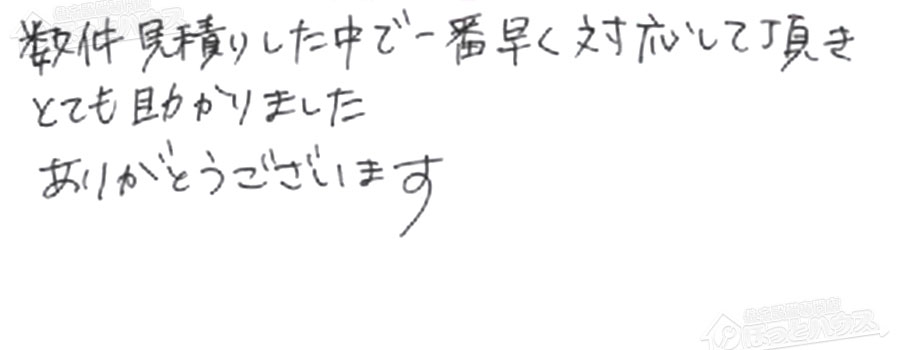 数件見積りした中で一番早く対応して頂き
とても助かりました
ありがとうございます
ほっとハウス